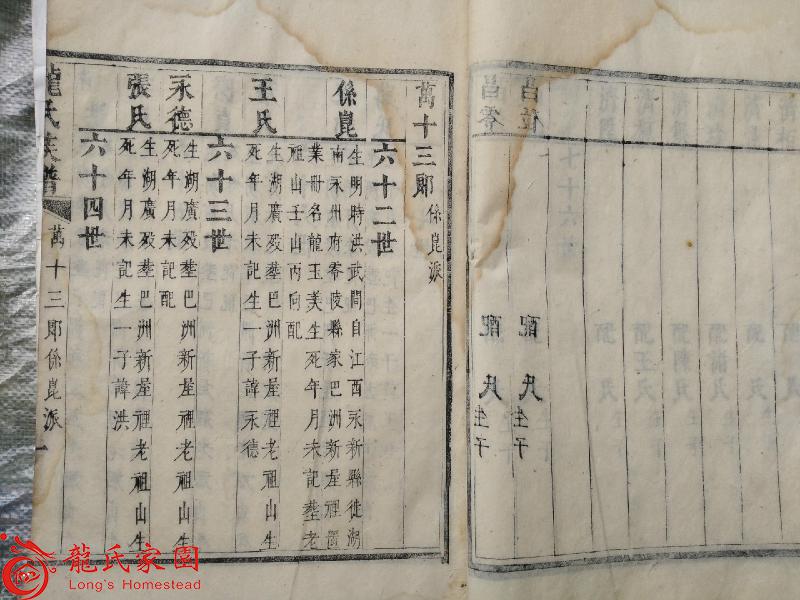 昌位
昌零
配氏生子
配氏生子
萬十三郎係崑派
六十二世
係崑
生明時洪武間自江西永新縣徙湖
南永州府零陵縣家巴洲新屋裡置
業冊名龍玉美生死年月未記塟老
祖山壬山丙向配
王氏
生湖廣歿塟巴洲新屋裡老祖山生
死年月未記生一子諱永德
六十三世
永德
生湖廣歿塟巴洲新屋裡老祖山生
死年月未記配
張氏
生湖廣歿塟巴洲新屋裡老祖山生
死年月未記生一子諱洪
六十四世
龍氏族譜
萬十三郎係崑派
一
龍氏家園
Long's Homestead